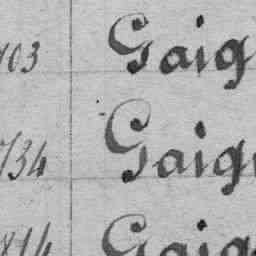 103 Gaig
734 Gaig
814 Gaig